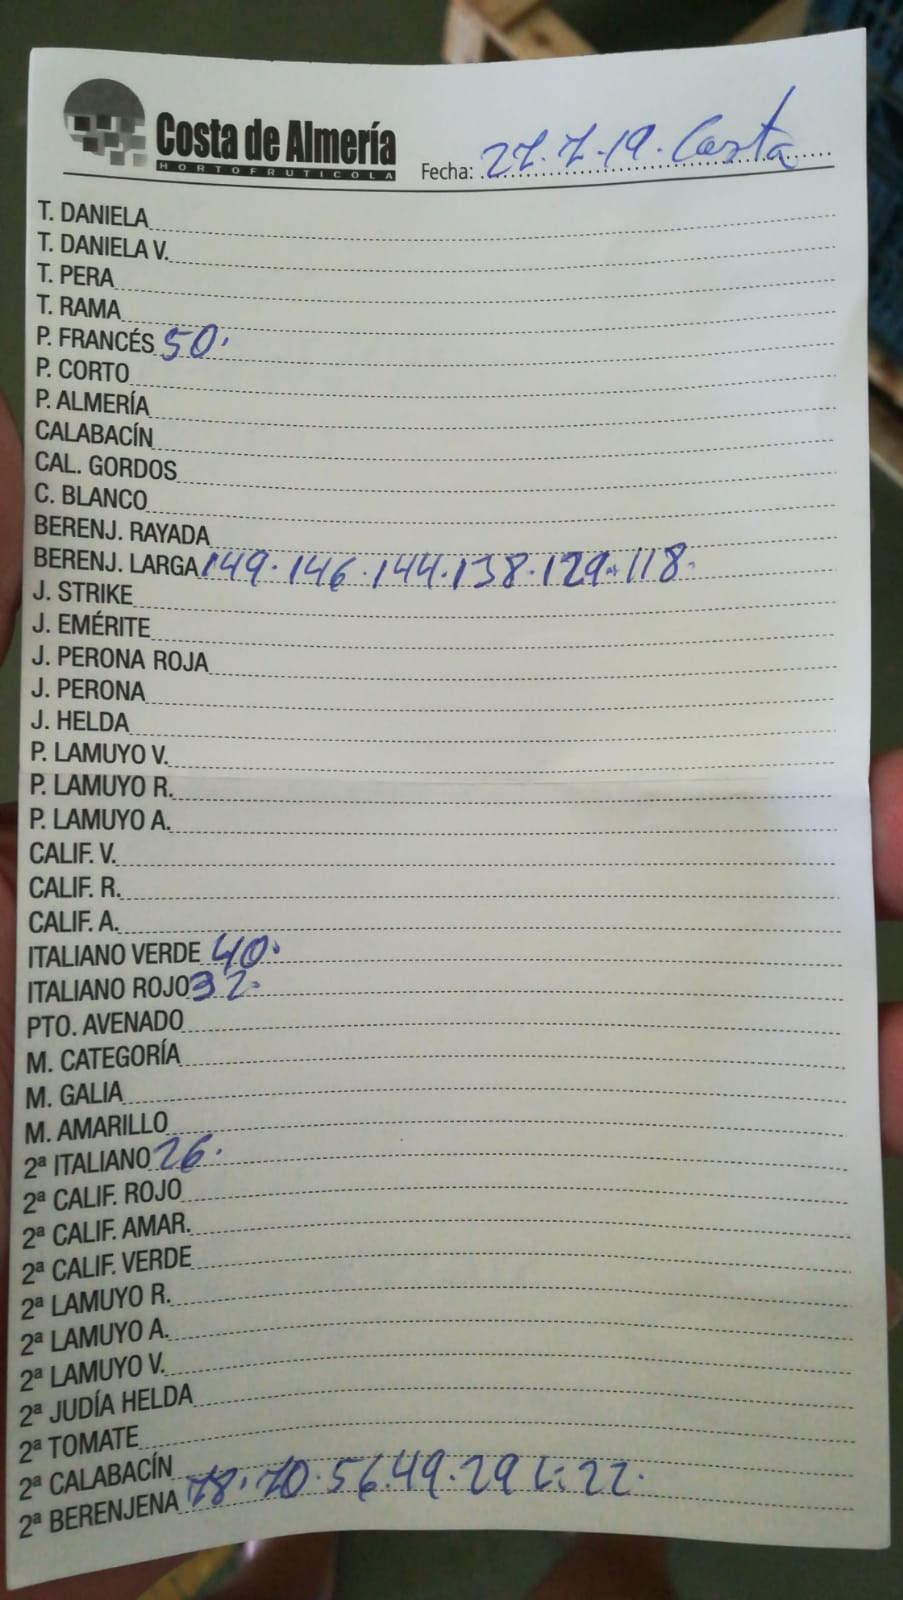 Costa de Almería
HORTOFRUTICOLA
Fecha: 27.7.19. Costa
T. DANIELA
T. DANIELA V.
T. PERA
T. RAMA
P. FRANCÉS 50.
P. CORTO
P. ALMERÍA
CALABACÍN
CAL. GORDOS
C. BLANCO
BERENJ. RAYADA
BERENJ. LARGA 149. 146. 144. 138. 129. 118.
J. STRIKE
J. EMÉRITE
J. PERONA ROJA
J. PERONA
J. HELDA
P. LAMUYO V.
P. LAMUYO R.
P. LAMUYO A.
CALIF. V.
CALIF. R.
CALIF. A.
ITALIANO VERDE 40.
ITALIANO ROJO 32.
PTO. AVENADO
M. CATEGORÍA
M. GALIA
M. AMARILLO
2ª ITALIANO 26.
2ª CALIF. ROJO
2ª CALIF. AMAR.
2ª CALIF. VERDE
2ª LAMUYO R.
2ª LAMUYO A.
2ª LAMUYO V.
2ª JUDÍA HELDA
2ª TOMATE
2ª CALABACÍN
2ª BERENJENA 78. 70. 56. 49. 29 22.